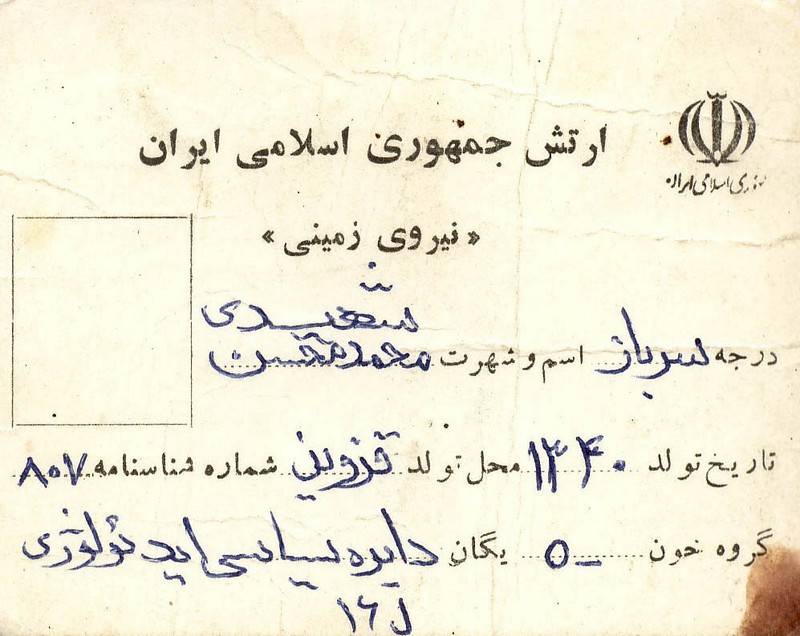 ارتش جمهوری اسلامی ایران
جمهوری اسلامی ایران
«نیروی زمینی»
شهیدی
درجه سرباز اسم و شهرت محمدمحسن
تاریخ تولد ۱۳۴۰ محل تولد قزوین شماره شناسنامه ۸۰۷
گروه خون O- یگان دایره سیاسی ایدئولوژی
ل ۱۶